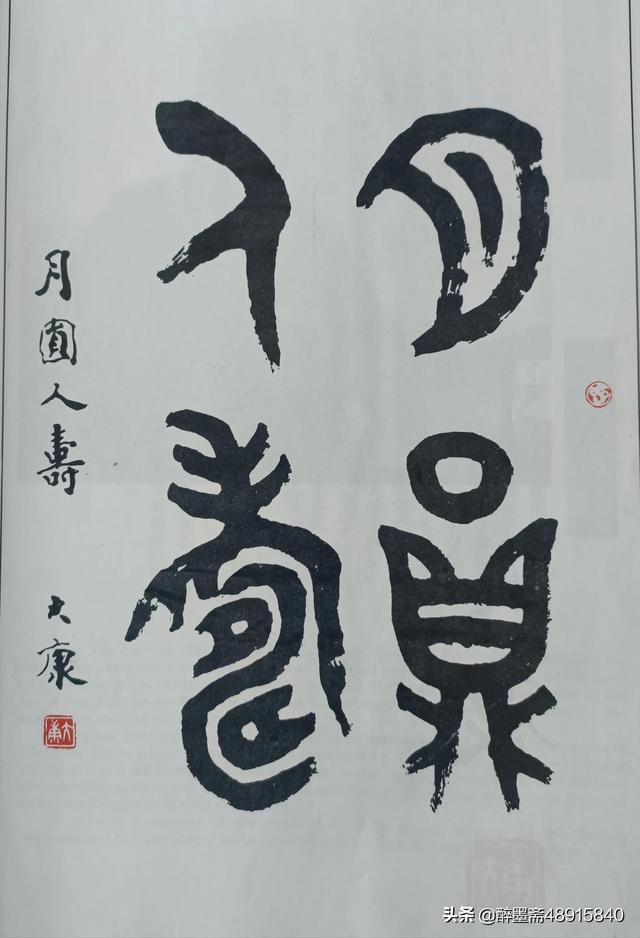 月員
人壽
月圓人壽 大康
大康
头条 @醉墨斋48915840